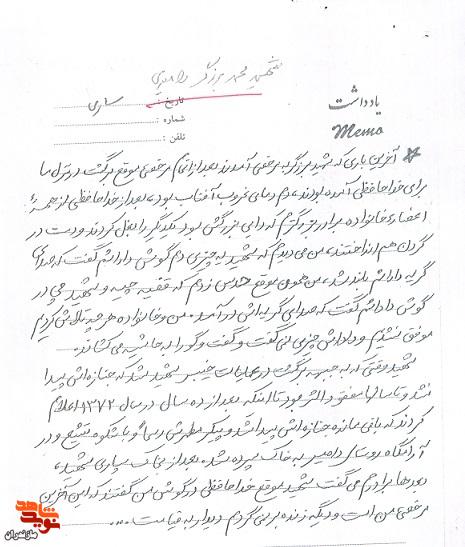 شهید محمد برزگر رامیری
یادداشت
Memo
تاریخ : ساری
شماره :
تلفن :
آخرین باری که شهید برزگر به مرخصی آمدند بعد از اتمام مرخصی موقع برگشت در منزل ما
برای خداحافظی آمده بودند، دم دمای غروب آفتاب بود، بعد از خداحافظی از همهٔ
اعضاء خانواده برادر بزرگترم که دایی بزرگش بود یکدیگر را بغل کردند و دست در
گردن هم انداختند، من می دیدم که شهید یه چیزی دم گوش داداشم گفت که صدای
گریه داداشم بلند شد، من همون موقع حدس زدم که قضیه چیه و شهید چی در
گوش داداشم گفت که صدای گریه اش در آمد. من و خانواده هر چه تلاش کردیم
موفق نشدیم و داداش چیزی نمی گفت و گفت و گو را به حاشیه می کشاند.
شهید وقتی که به جبهه برگشت در عملیات خیبر شهید شد که جنازه اش پیدا
نشد و تا سالها مفقودالاثر بود تا اینکه بعد از ده سال در سال ۱۳۷۲ اعلام
کردند که باقی مانده جنازه اش پیدا شد و پیکر مطهرش رسماً و با شکوه تشییع و در
آرامگاه روستای رامیر به خاک سپرده شد. بعد از خاک سپاری شهید،
بعدها برادرم می گفت شهید موقع خداحافظی در گوش من گفتند که این آخرین
مرخصی من است و دیگه زنده بر نمی گردم دیدار به قیامت ....
نوید شاهد
مازندران